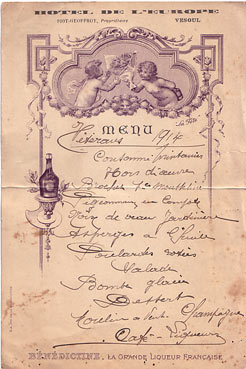 HOTEL DE L'EUROPE
NIOT-GEOFFROY, Propriétaire VESOUL
MENU
Vétérans 1914
Consommé printanier
Hors d'œuvre
Brochet
Pigeonneau en Compote
Noix de veau Jardinière
Asperges à l'huile
Poulardes roties
Salade
Bombe glacée
Dessert
Moulin à Vent - Champagne
Café - Liqueurs
BÉNÉDICTINE, LA GRANDE LIQUEUR FRANÇAISE